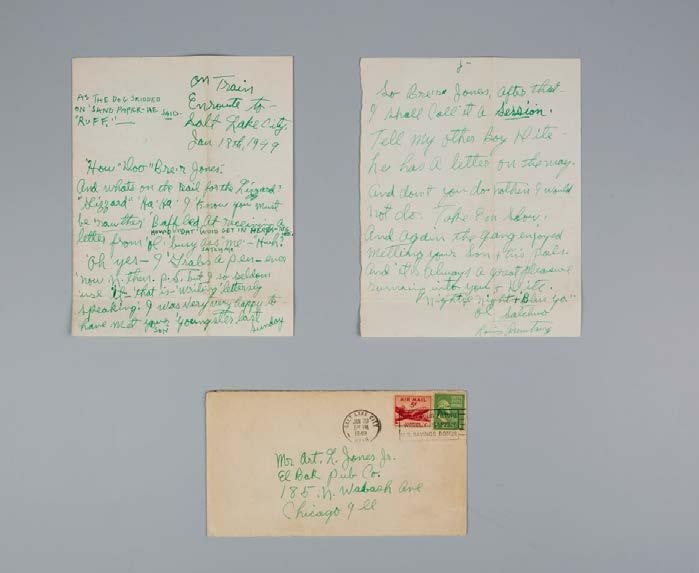 on Train
Enroute to -
Salt Lake City,
Jan 18th, 1949
AS THE DOG SKIDDED
ON 'SAND PAPER - HE SAID.
"RUFF." -
"How" "Doo" Bre'r Jones:
And whats on the Rail for the Lizzard?
"Gizzard" 'Ha 'Ha' I know you must
be 'rawther' Baffled At receiving a
letter from 'ol' me - Huh?
HOW'D DAT WORD GET IN HERE
SATCHMO
'Oh yes - I 'Grabs A pen - ever
now 'n' then. p.s. but I so seldom
use 'it - that is - 'writing' letters
speaking. I was very very happy to
have met your 'youngster last
SON
Sunday
So Bre'r Jones, after that -
I shall call it a Session.
Tell my other Boy Hite -
he has a letter on the way.
And don't you do nothin I would
not do. Take Em slow.
And again the gang enjoyed
meeting your Son & his pals.
And it's always a great pleasure
running into you & Hite.
"Night 'Night & Bless ya"
ol Satchmo
Louis Armstrong
SALT LAKE CITY
JAN
1949
AIR MAIL
5¢
U.S. SAVINGS BONDS
Mr Art. L. Jones Jr.
El Bak Pub Co.
185. N. Wabash Ave
Chicago 9 Ill